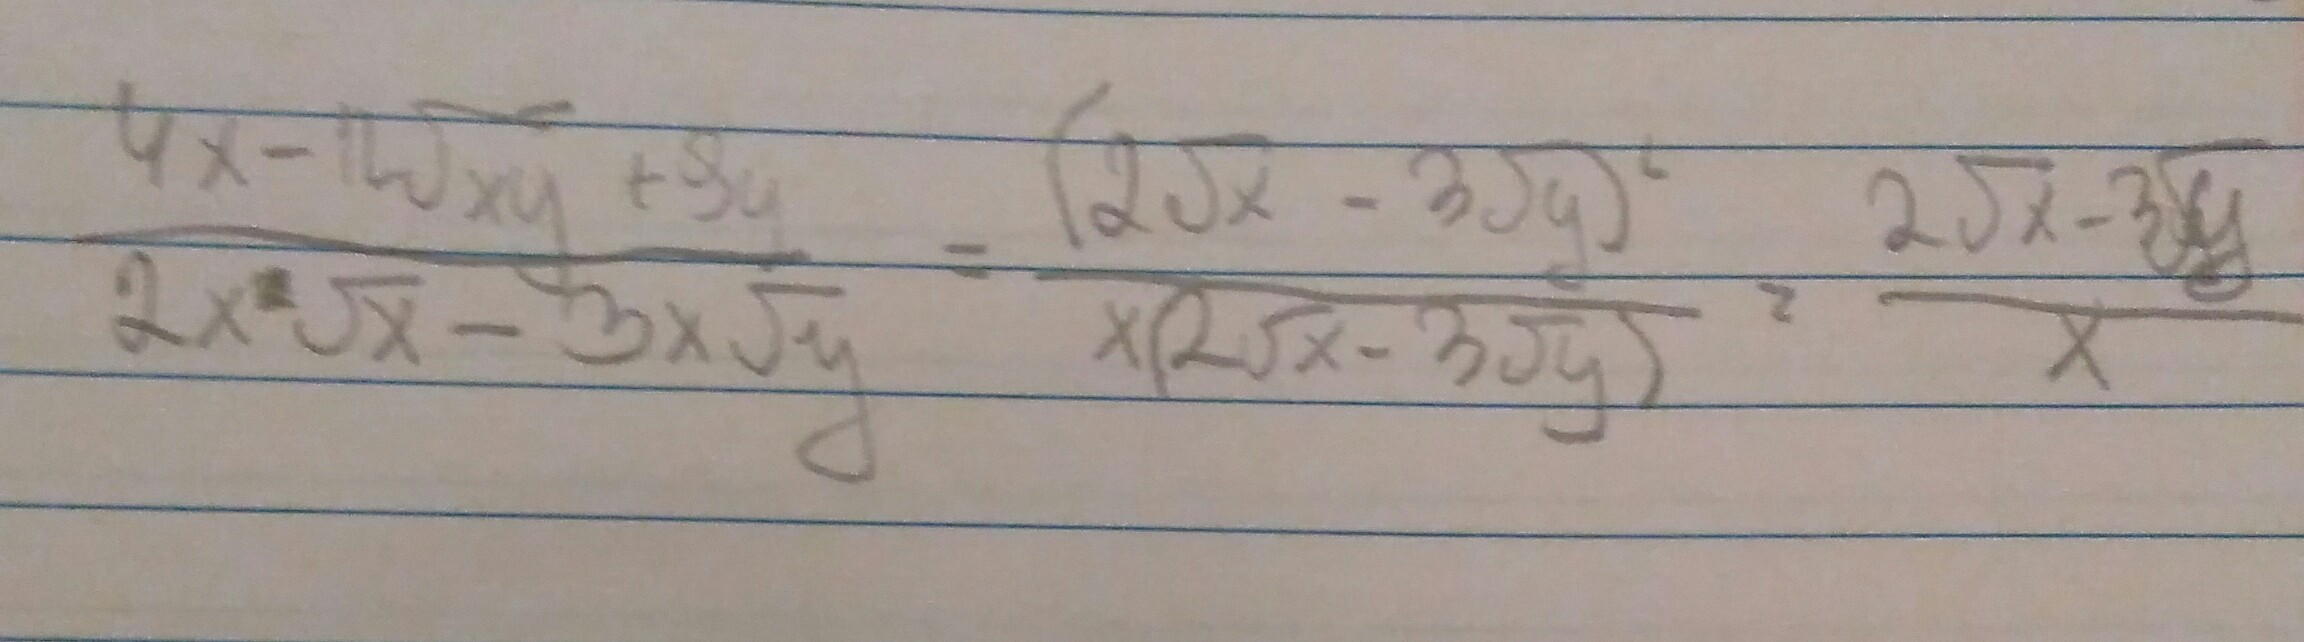 (4x - 12√xy + 9y) / (2x√x - 3x√y) = (2√x - 3√y)² / x(2√x - 3√y) = (2√x - 3√y) / x